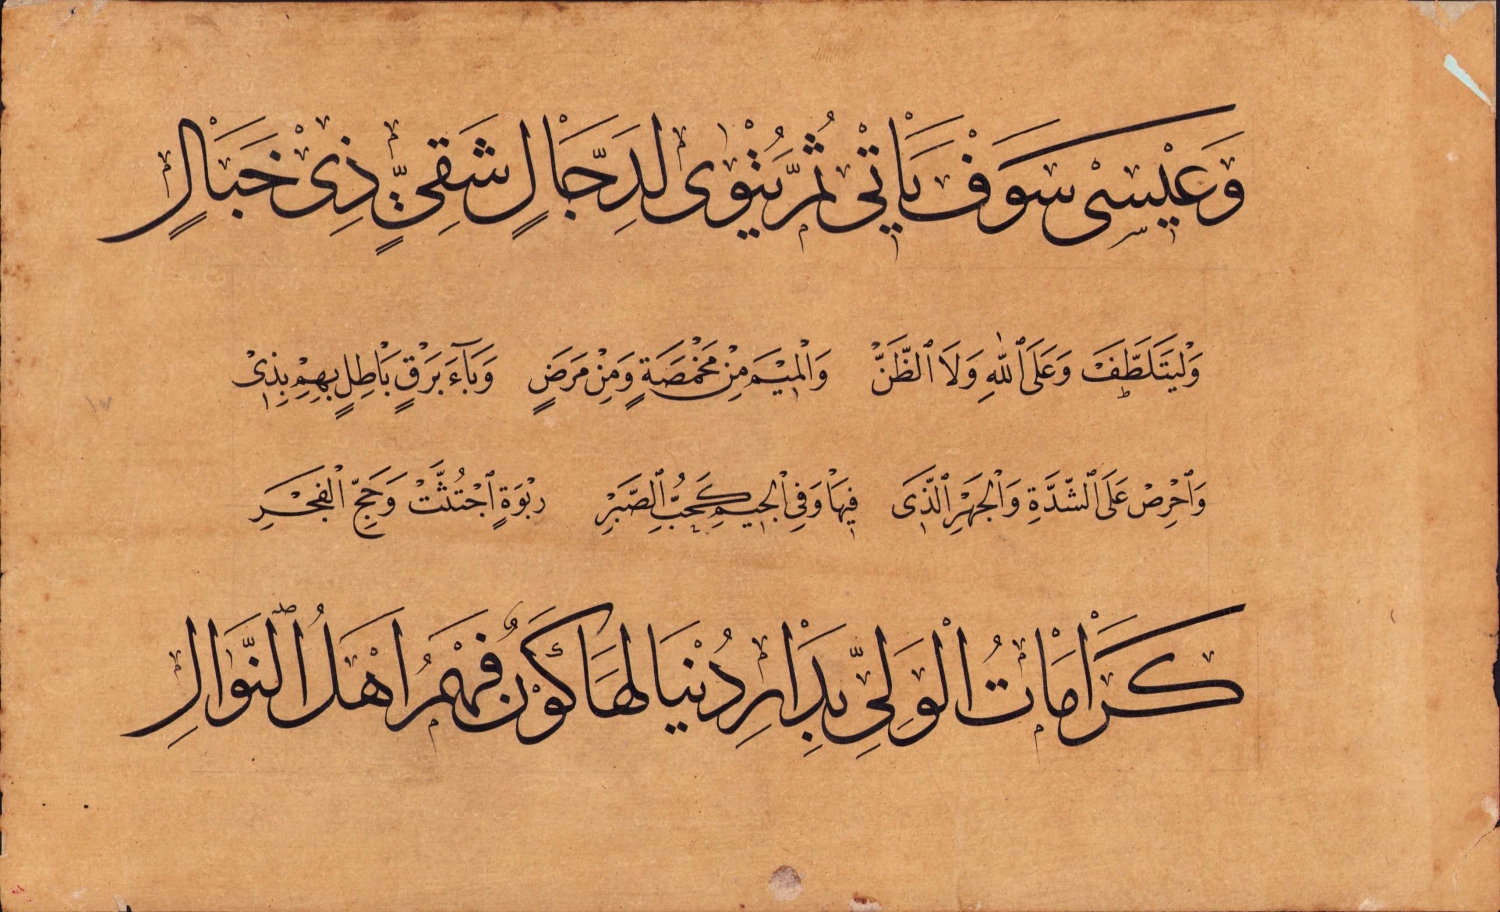 وَعِيْسٰى سَوْفَ يَاْتِىْ ثُمَّ يُتْوِىْ لِدَجَّالٍ شَقِىٍّ ذِىْ خَبَالٍ
وَلْيَتَلَطَّفْ وَعَلَى ٱللّٰهِ وَلَا ٱلظَّنّْ وَالْمِيْمَ مِنْ مَخْمَصَةٍ وَمِنْ مَرَضٍ وَبَآءَ بَرْقٍ بَاْطِلٍ بِهِمْ بِذِىْ
وَٱحْرِصْ عَلَى ٱلشِّدَّةِ وَالْجَهْرِ ٱلَّذِى فِيْهَاْ وَفِى ٱلْجِيْمِ كَحُبِّ ٱلصَّبْرِ رَبْوَةٍ ٱجْتُثَّتْ وَحَجِّ الْفَجْرِ
كَرَاْمَاْتُ الْوَلِىِّ بِدَاْرِ دُنْيَا لَهَا كَوْنٌ فَهُمْ اَهْلُ ٱلنَّوَالِ